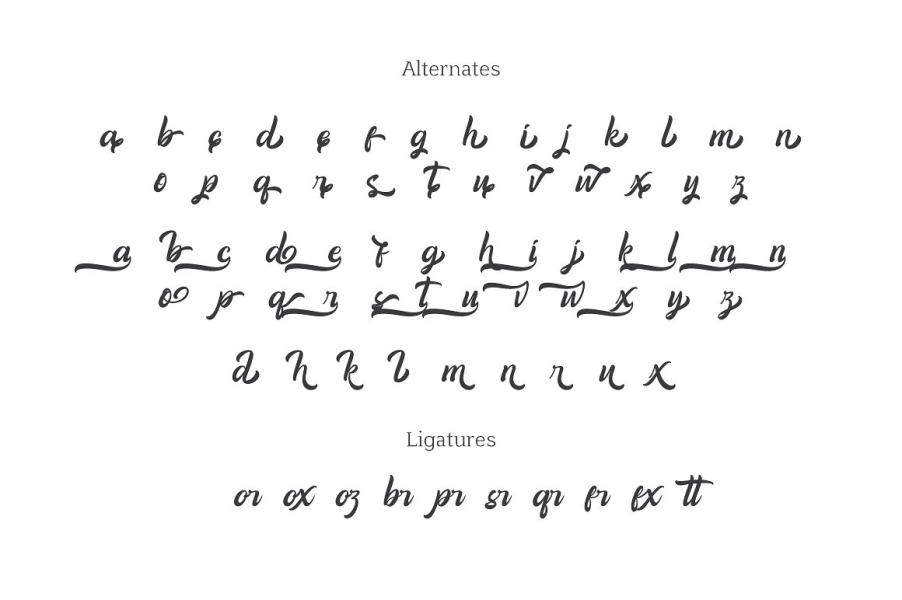 Alternates
a b c d e f g h i j k l m n
o p q r s t u v w x y z
a b c d e f g h i j k l m n
o p q r s t u v w x y z
d h k l m n r u x
Ligatures
or ox oz br pr sr qr fr fx tt